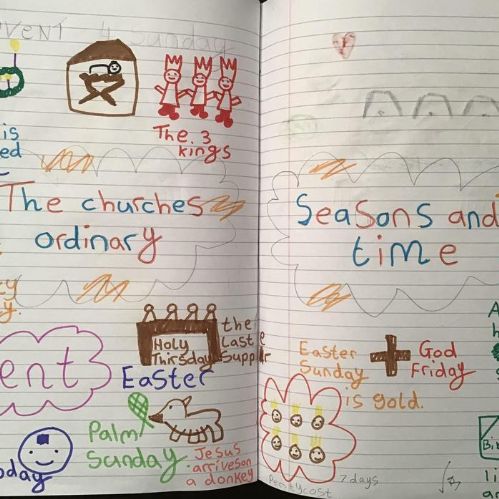 VENT 4 Sunday
The 3
kings
is
ed
The churches
ordinary
Seasons and
time
y.
the
Last
Supper
Holy
Thirsday
Easter
ent
Palm
Sunday
Jesus
arriveson
a donkey
oday
Easter
Sunday
is gold.
God
Friday
Pentycost
7 days
A
Bir